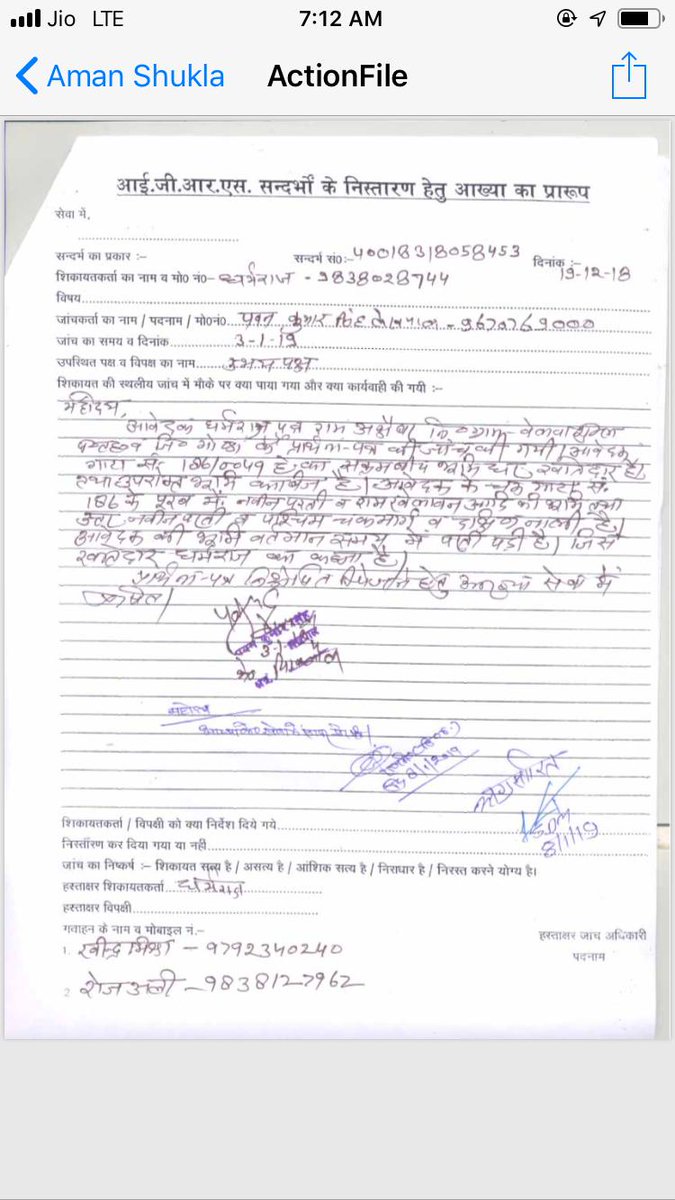 Jio LTE 7:12 AM
Aman Shukla ActionFile
आई.जी.आर.एस. सन्दर्भों के निस्तारण हेतु आख्या का प्रारूप
सेवा में,
सन्दर्भ का प्रकार :- सन्दर्भ सं०:- 40018318058453 दिनांक :- 19-12-18
शिकायतकर्ता का नाम व मो० नं०- धर्मराज - 9838028744
विषय
जांचकर्ता का नाम / पदनाम / मो०नं० पवन कुमार सिंह लेखपाल - 9670769000
जांच का समय व दिनांक 3-1-19
उपस्थित पक्ष व विपक्ष का नाम उभय पक्ष
शिकायत की स्थलीय जांच में मौके पर क्या पाया गया और क्या कार्यवाही की गयी :-
महोदय,
आवेदक धर्मराज पुत्र राम नि० ग्राम
जि० गोण्डा के प्रार्थना-पत्र की जांच की गयी। आवेदक
गाटा सं० 186/0.049 है० का संक्रमणीय भूमिधर खातेदार है।
तथा उपरोक्त भूमि पर काबिज है। आवेदक के गाटा सं.
186 के पूरब में नवीन परती व आदि की भूमि तथा
उत्तर नवीन परती व पश्चिम चकमार्ग व दक्षिण नाली है।
आवेदक की भूमि वर्तमान समय में परती पड़ी है। जिसे
खातेदार धर्मराज का कब्जा है।
प्रार्थना-पत्र हेतु आख्या सेवा में
प्रेषित।
3-1-19
महोदय
8/1/2019
अग्रसारित
SDM
8/1/19
शिकायतकर्ता / विपक्षी को क्या निर्देश दिये गये
निस्तांरण कर दिया गया या नही
जांच का निष्कर्ष :- शिकायत सत्य है / असत्य है / आंशिक सत्य है / निराधार है / निरस्त करने योग्य है।
हस्ताक्षर शिकायतकर्ता धर्मराज
हस्ताक्षर विपक्षी
गवाहन के नाम व मोबाइल नं.-
हस्ताक्षर जाच अधिकारी
पदनाम
1. रवीन्द्र मिश्रा - 9792340240
2. रोजअली - 9838127962